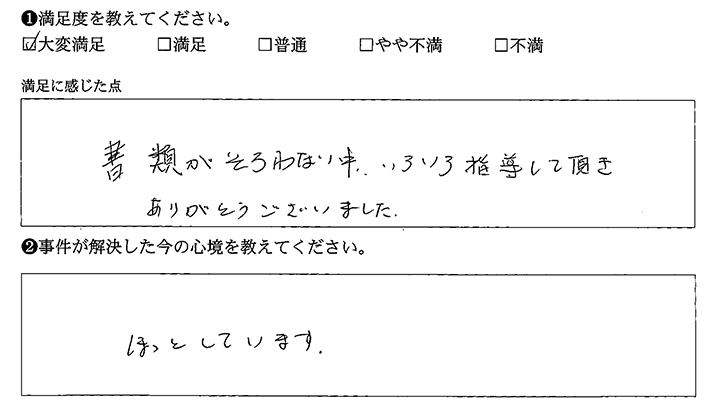 ❶満足度を教えてください。
☑大変満足 □満足 □普通 □やや不満 □不満
満足に感じた点
書類がそろわない中、いろいろ指導して頂き
ありがとうございました.
❷事件が解決した今の心境を教えてください。
ほっとしています.